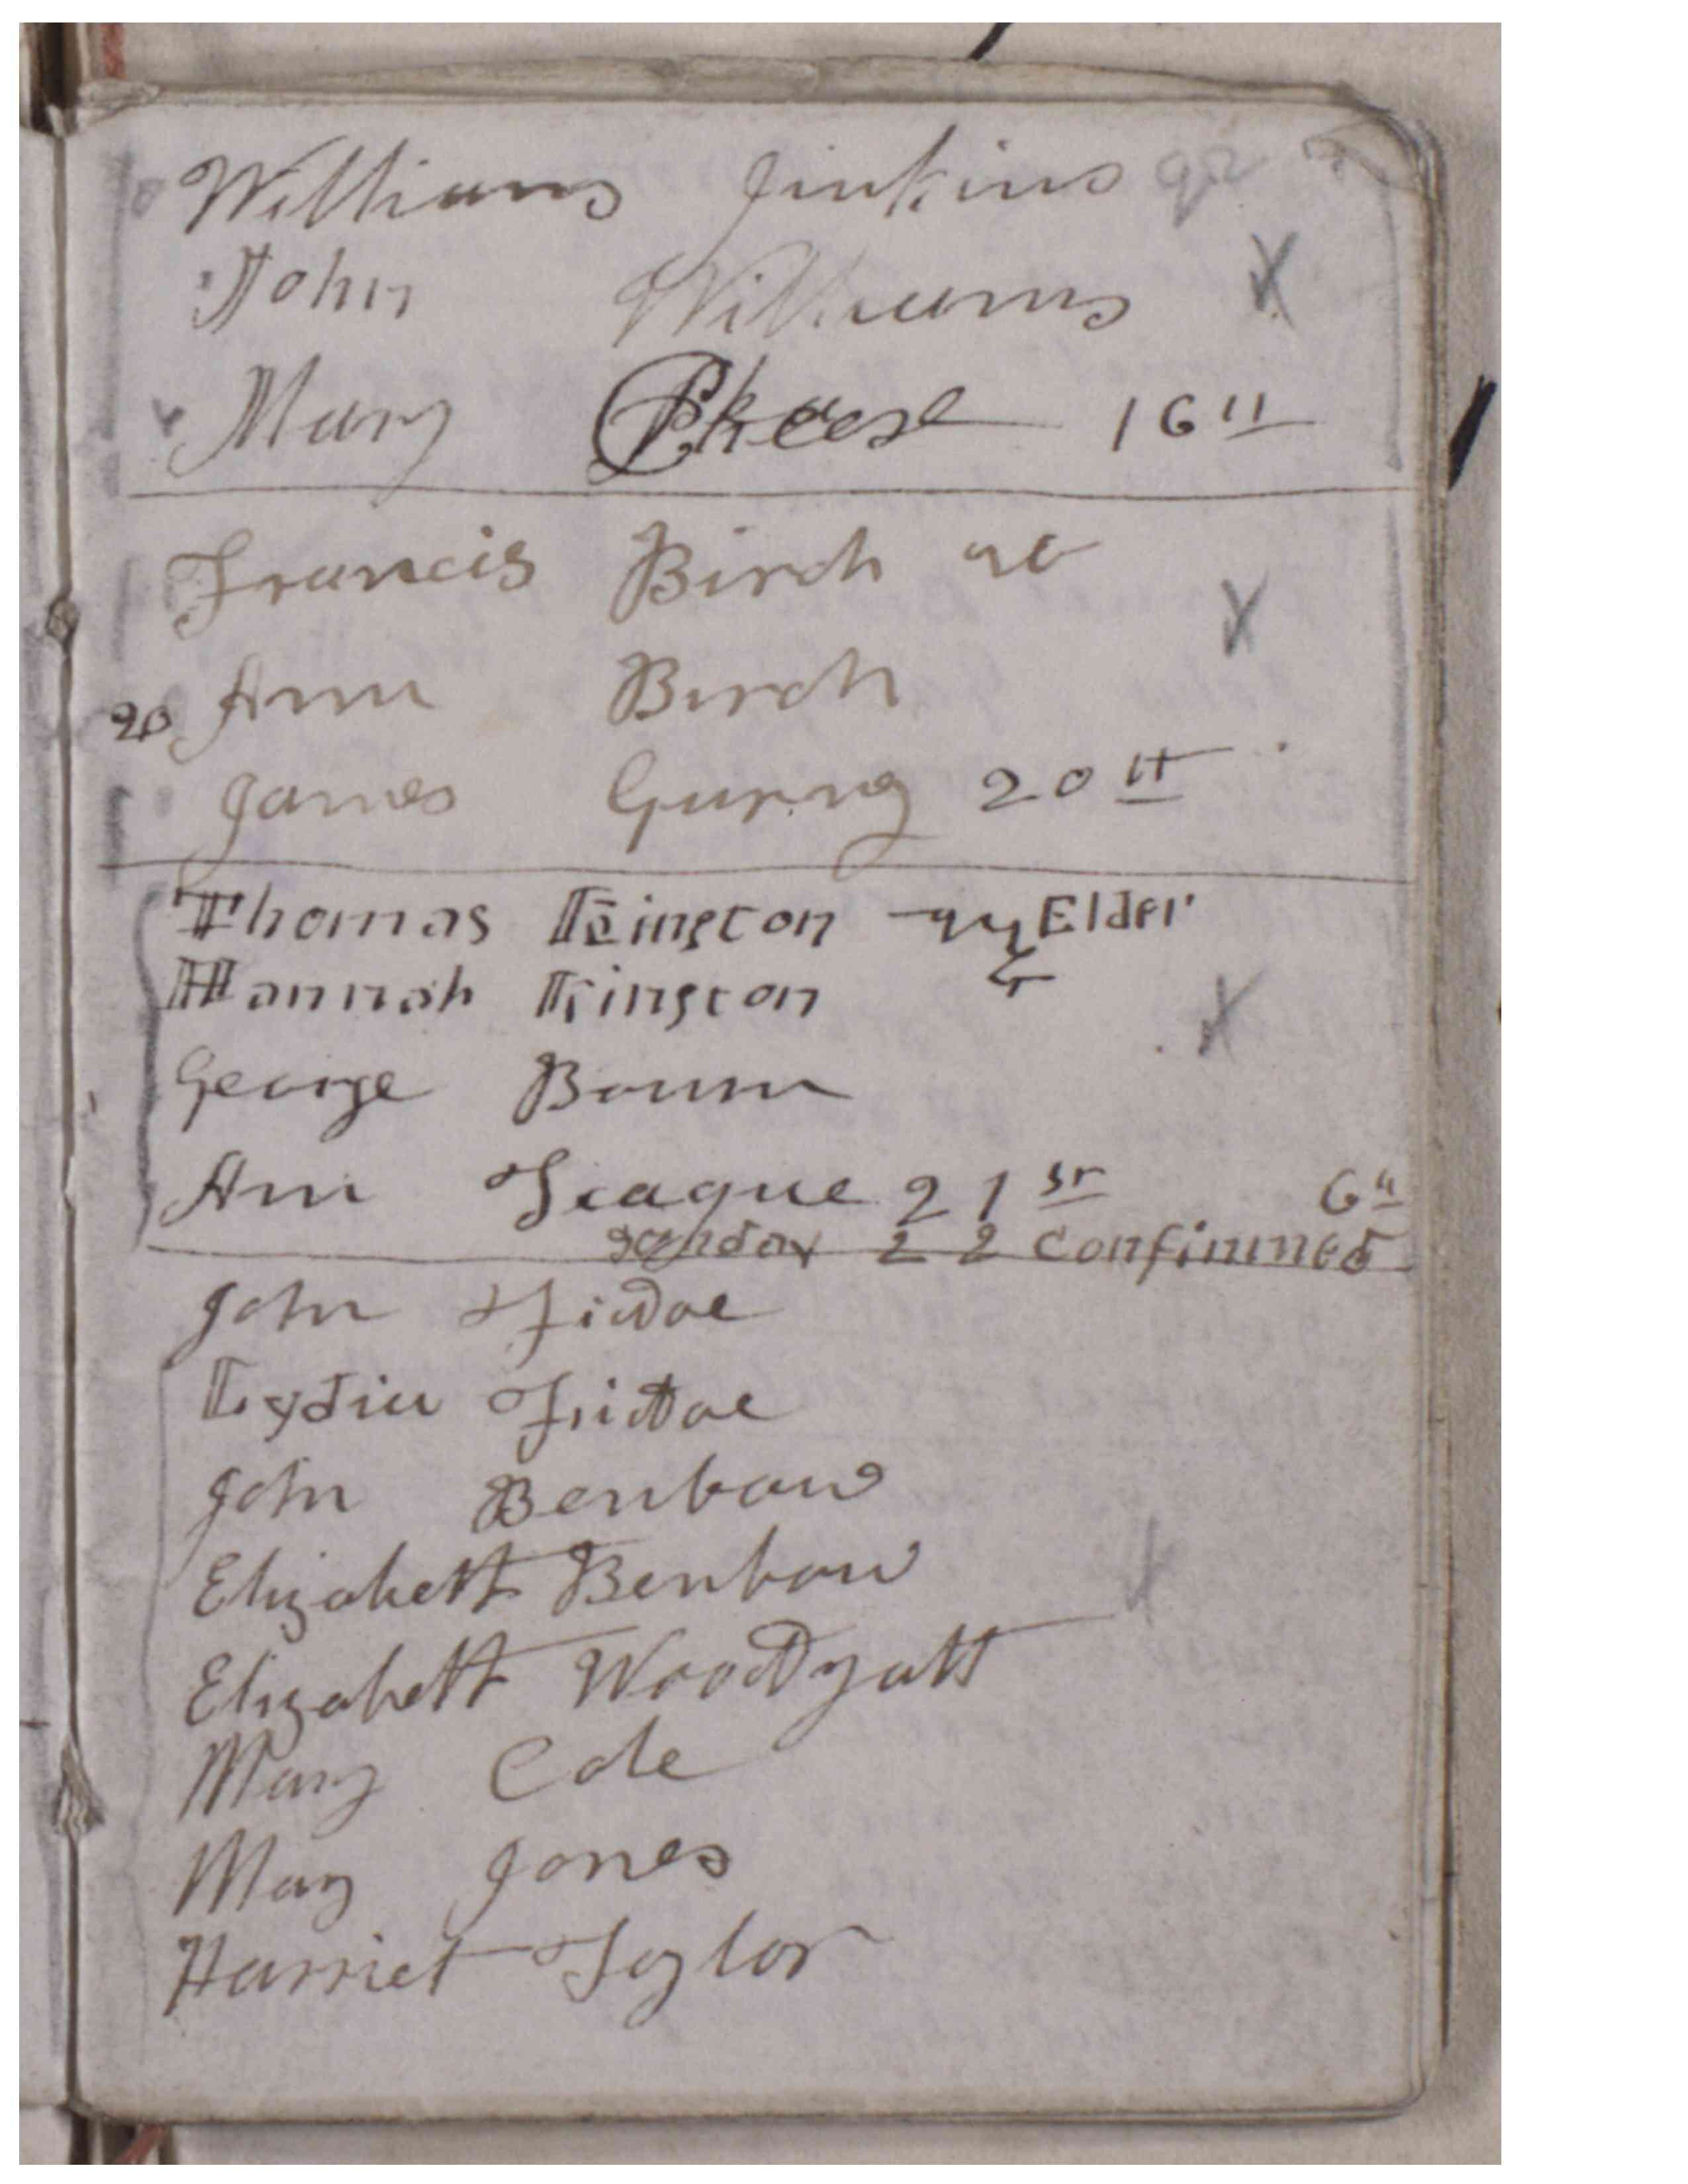 Williams Jinkins
John Williams X
Mary Phease 16th
Francis Birch
X
20 Ann Birch
James Gurney 20th
Thomas Kington Elder
Hannah Kington
X
George Bourn
Ann Teague 21st 6th
sunday 22 confirmed
John Fidoe
Lydia Fidoe
John Benbow
Elizabeth Benbow
Elizabeth Woodyatt
Mary Cole
Mary Jones
Harriet Taylor